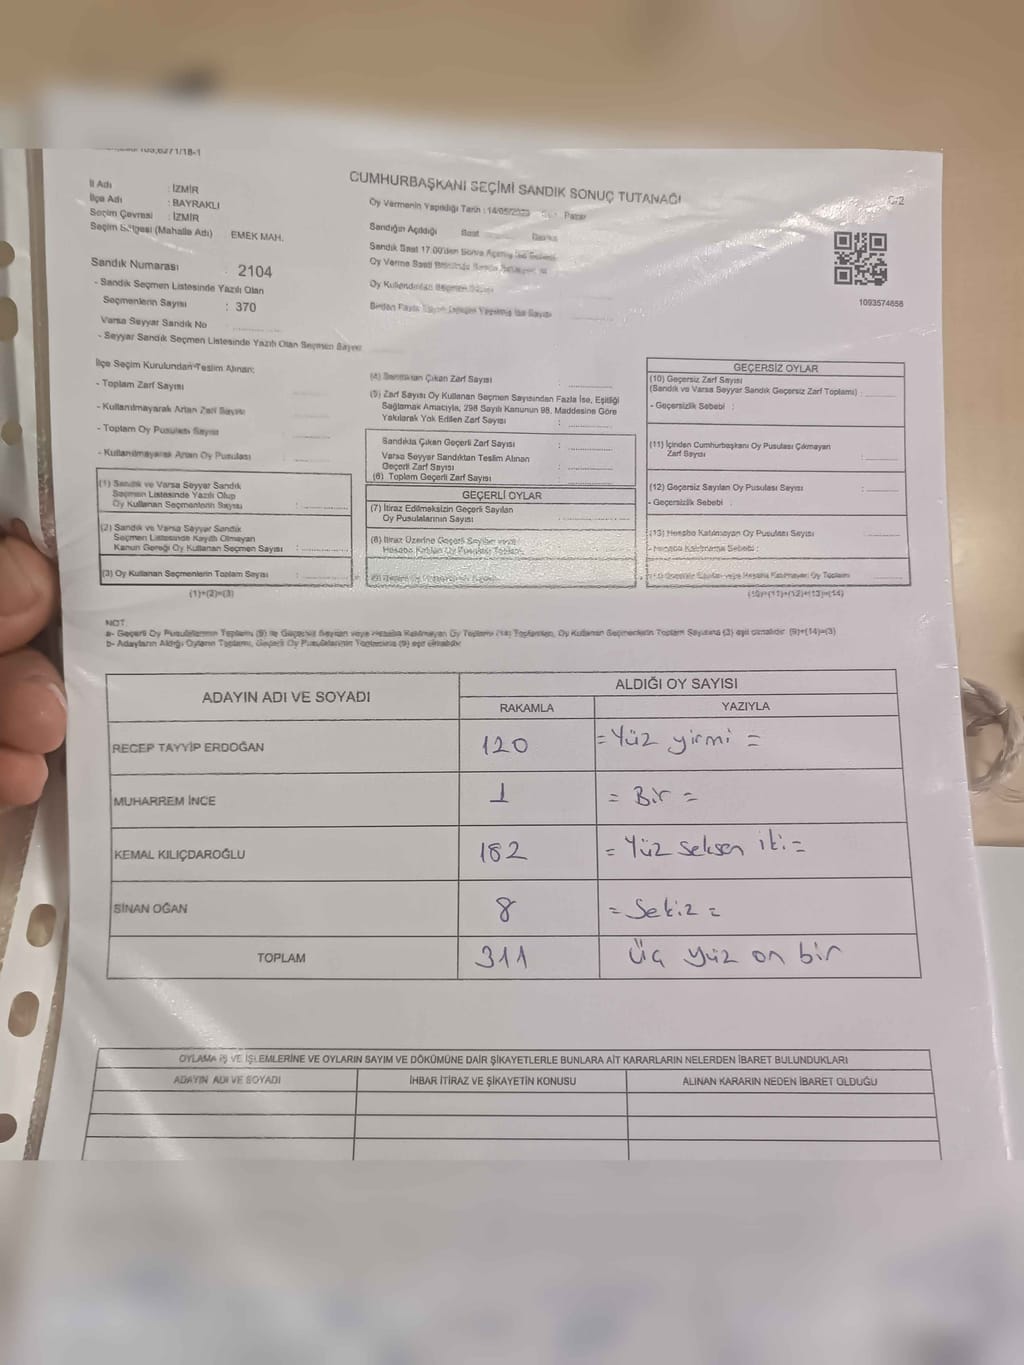 CUMHURBAŞKANI SEÇİMİ SANDIK SONUÇ TUTANAĞI
C-2
İl Adı : İZMİR
İlçe Adı : BAYRAKLI
Seçim Çevresi : İZMİR
Seçim Bölgesi (Mahalle Adı) EMEK MAH.
Sandık Numarası : 2104
- Sandık Seçmen Listesinde Yazılı Olan
Seçmenlerin Sayısı : 370
Varsa Seyyar Sandık No
- Seyyar Sandık Seçmen Listesinde Yazılı Olan Seçmen Sayısı
Oy Vermenin Yapıldığı Tarih : 14/05/2023 Pazar
Sandığın Açıldığı Saat
Oy Kullandırılan Seçmen Sayısı
1093574658
İlçe Seçim Kurulundan Teslim Alınan;
- Toplam Zarf Sayısı
- Kullanılmayarak Artan Zarf Sayısı
- Toplam Oy Pusulası Sayısı
- Kullanılmayarak Artan Oy Pusulası
(1) Sandık ve Varsa Seyyar Sandık
Seçmen Listesinde Yazılı Olup
Oy Kullanan Seçmenlerin Sayısı :
(2) Sandık ve Varsa Seyyar Sandık
Seçmen Listesinde Kayıtlı Olmayan
Kanun Gereği Oy Kullanan Seçmen Sayısı :
(3) Oy Kullanan Seçmenlerin Toplam Sayısı :
(1)+(2)=(3)
(4) Sandıktan Çıkan Zarf Sayısı :
(5) Zarf Sayısı Oy Kullanan Seçmen Sayısından Fazla İse, Eşitliği
Sağlamak Amacıyla, 298 Sayılı Kanunun 98. Maddesine Göre
Yakılarak Yok Edilen Zarf Sayısı :
Sandıkta Çıkan Geçerli Zarf Sayısı :
Varsa Seyyar Sandıktan Teslim Alınan
Geçerli Zarf Sayısı :
(6) Toplam Geçerli Zarf Sayısı :
GEÇERLİ OYLAR
(7) İtiraz Edilmeksizin Geçerli Sayılan
Oy Pusulalarının Sayısı :
(8) İtiraz Üzerine Geçerli Sayılan veya
Hesaba Katılan Oy Pusulası Toplamı
GEÇERSİZ OYLAR
(10) Geçersiz Zarf Sayısı
(Sandık ve Varsa Seyyar Sandık Geçersiz Zarf Toplamı) :
- Geçersizlik Sebebi :
(11) İçinden Cumhurbaşkanı Oy Pusulası Çıkmayan
Zarf Sayısı :
(12) Geçersiz Sayılan Oy Pusulası Sayısı :
- Geçersizlik Sebebi :
(13) Hesaba Katılmayan Oy Pusulası Sayısı :
- Hesaba Katılmama Sebebi :
(10)+(11)+(12)+(13)=(14)
NOT:
a- Geçerli Oy Pusulalarının Toplamı (9) ile Geçersiz Sayılan veya Hesaba Katılmayan Oy Toplamı (14) Toplamları, Oy Kullanan Seçmenlerin Toplam Sayısına (3) eşit olmalıdır. (9)+(14)=(3)
b- Adayların Aldığı Oyların Toplamı, Geçerli Oy Pusulalarının Toplamına (9) eşit olmalıdır.
ADAYIN ADI VE SOYADI ALDIĞI OY SAYISI
RAKAMLA YAZIYLA
RECEP TAYYİP ERDOĞAN 120 = Yüz yirmi =
MUHARREM İNCE 1 = Bir =
KEMAL KILIÇDAROĞLU 182 = Yüz seksen iki =
SİNAN OĞAN 8 = Sekiz =
TOPLAM 311 Üç yüz on bir
OYLAMA İŞ VE İŞLEMLERİNE VE OYLARIN SAYIM VE DÖKÜMÜNE DAİR ŞİKAYETLERLE BUNLARA AİT KARARLARIN NELERDEN İBARET BULUNDUKLARI
ADAYIN ADI VE SOYADI İHBAR İTİRAZ VE ŞİKAYETİN KONUSU ALINAN KARARIN NEDEN İBARET OLDUĞU